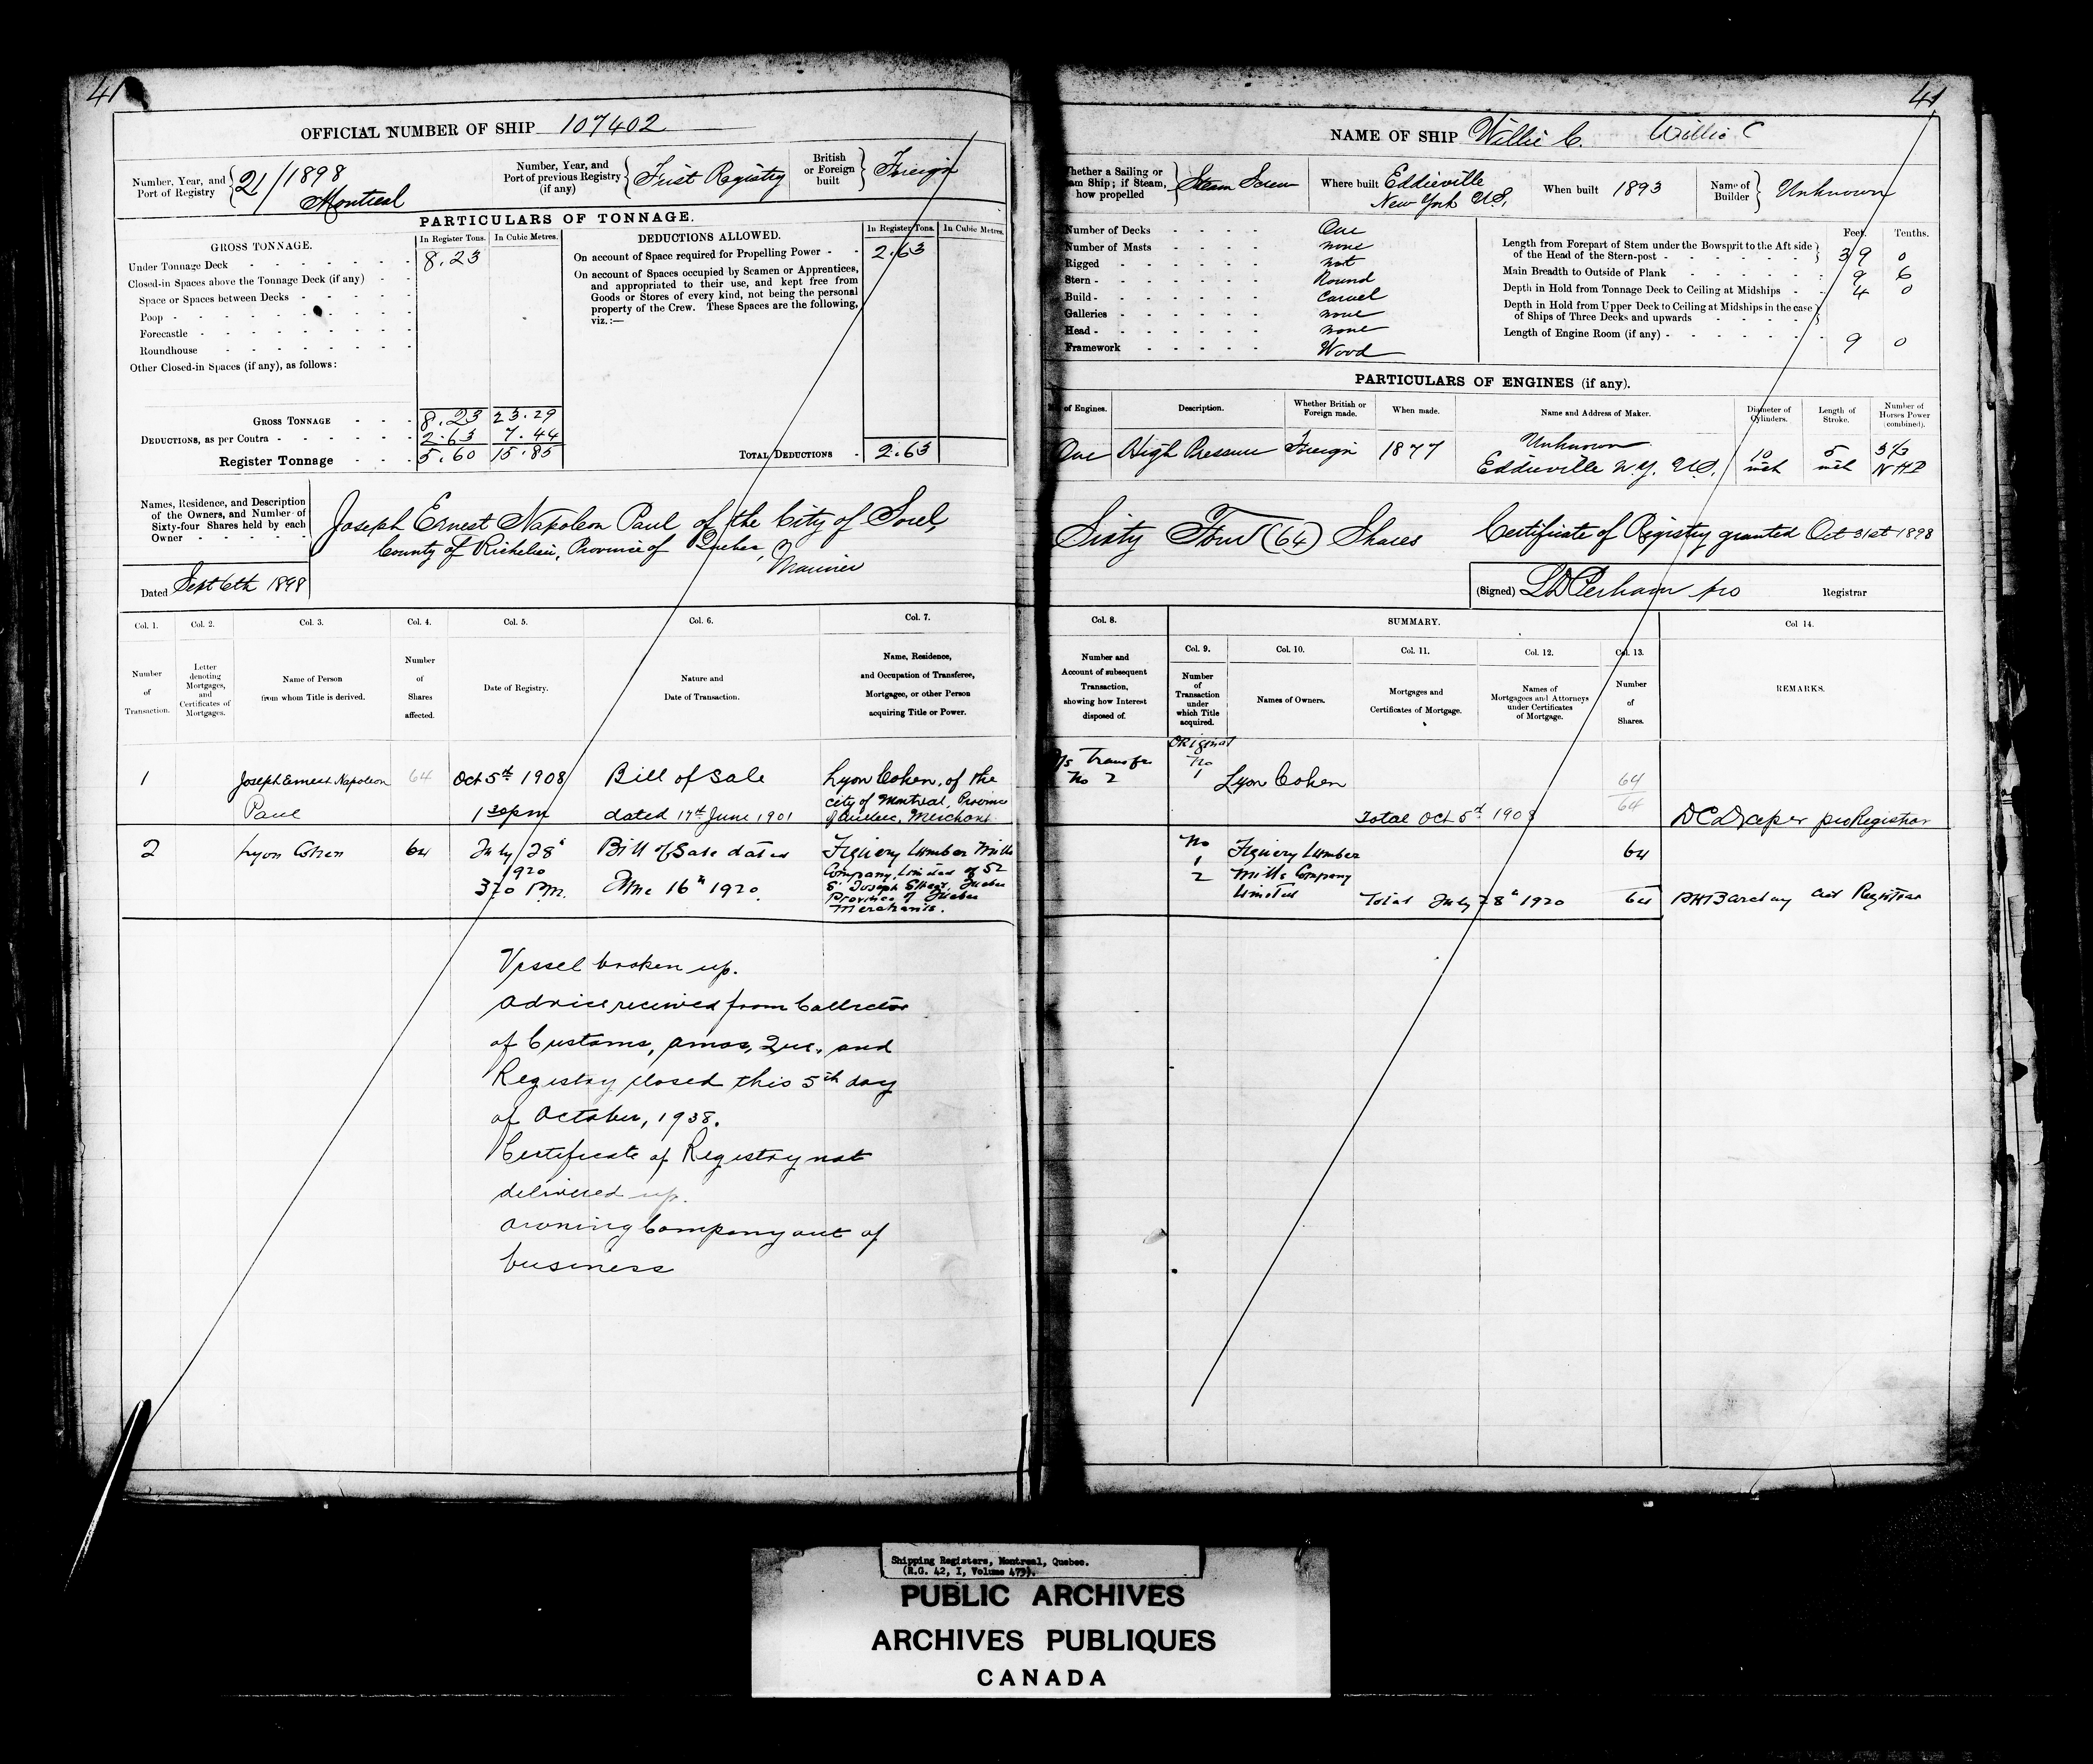 41
OFFICIAL NUMBER OF SHIP 107402
Number, Year, and Port of Registry 21/1898 Montreal
Number, Year, and Port of previous Registry (if any) First Registry
British or Foreign built Foreign
PARTICULARS OF TONNAGE.
GROSS TONNAGE. In Register Tons. In Cubic Metres.
Under Tonnage Deck 8.23
Closed-in Spaces above the Tonnage Deck (if any)
Space or Spaces between Decks
Poop
Forecastle
Roundhouse
Other Closed-in Spaces (if any), as follows:
GROSS TONNAGE 8.23 23.29
DEDUCTIONS, as per Contra 2.63 7.44
Register Tonnage 5.60 15.85
DEDUCTIONS ALLOWED. In Register Tons. In Cubic Metres.
On account of Space required for Propelling Power 2.63
On account of Spaces occupied by Seamen or Apprentices,
and appropriated to their use, and kept free from
Goods or Stores of every kind, not being the personal
property of the Crew. These Spaces are the following,
viz.:—
TOTAL DEDUCTIONS 2.63
Names, Residence, and Description
of the Owners, and Number of
Sixty-four Shares held by each
Owner
Joseph Ernest Napoleon Paul of the City of Sorel,
County of Richelieu, Province of Quebec,
Mariner
Dated Sept 6th 1898
Col. 1. Col. 2. Col. 3. Col. 4. Col. 5. Col. 6. Col. 7.
Number of Transaction.
Letter denoting Mortgages, and Certificates of Mortgages.
Name of Person from whom Title is derived.
Number of Shares affected.
Date of Registry.
Nature and Date of Transaction.
Name, Residence, and Occupation of Transferee, Mortgagee, or other Person acquiring Title or Power.
1 Joseph Ernest Napoleon 64 Oct 5th 1908 Bill of Sale Lyon Cohen, of the
Paul 1 30 pm dated 17th June 1901 city of Montreal, Province
of Quebec, Merchant
2 Lyon Cohen 64 July 28th Bill of Sale dated Figuery Lumber Mills
1920 Company, Limited of 52
3 20 P.M. June 16th 1920. St Joseph Street, Quebec
Province of Quebec
Merchants.
Vessel broken up.
Advice received from Collector
of Customs, Amos, Que. and
Registry closed this 5th day
of October, 1938.
Certificate of Registry not
delivered up.
Owning Company out of
business
41
NAME OF SHIP Willie C. Willie C
Whether a Sailing or Steam Ship; if Steam, how propelled Steam Screw
Where built Eddieville New York U.S.
When built 1893
Name of Builder Unknown
Number of Decks One
Number of Masts none
Rigged not
Stern Round
Build Carvel
Galleries none
Head none
Framework Wood
Feet. Tenths.
Length from Forepart of Stem under the Bowsprit to the Aft side
of the Head of the Stern-post 39 0
Main Breadth to Outside of Plank 9 6
Depth in Hold from Tonnage Deck to Ceiling at Midships 4 0
Depth in Hold from Upper Deck to Ceiling at Midships in the case
of Ships of Three Decks and upwards
Length of Engine Room (if any) 9 0
PARTICULARS OF ENGINES (if any).
of Engines. Description. Whether British or Foreign made. When made. Name and Address of Maker. Diameter of Cylinders. Length of Stroke. Number of Horses Power (combined).
One High Pressure Foreign 1877 Unknown 10 5 3 1/3
Eddieville N.Y. U.S. inch inch NHP
Sixty Four (64) Shares Certificate of Registry granted Oct 31st 1898
(Signed) Registrar
Col. 8. SUMMARY. Col 14.
Col. 9. Col. 10. Col. 11. Col. 12. Col. 13.
Number and Account of subsequent Transaction, showing how Interest disposed of.
Number of Transaction under which Title acquired.
Names of Owners.
Mortgages and Certificates of Mortgage.
Names of Mortgagees and Attorneys under Certificates of Mortgage.
Number of Shares.
REMARKS.
Original
Transfer No
No 2 1 Lyon Cohen 64
64
Total Oct 5th 1908 DC Draper pro Registrar
No Figuery Lumber 64
1 Mills Company
2 Limited Total July 28th 1920 64 Barclay act Registrar
Shipping Registers, Montreal, Quebec.
(R.G. 42, I, Volume 475).
PUBLIC ARCHIVES
ARCHIVES PUBLIQUES
CANADA